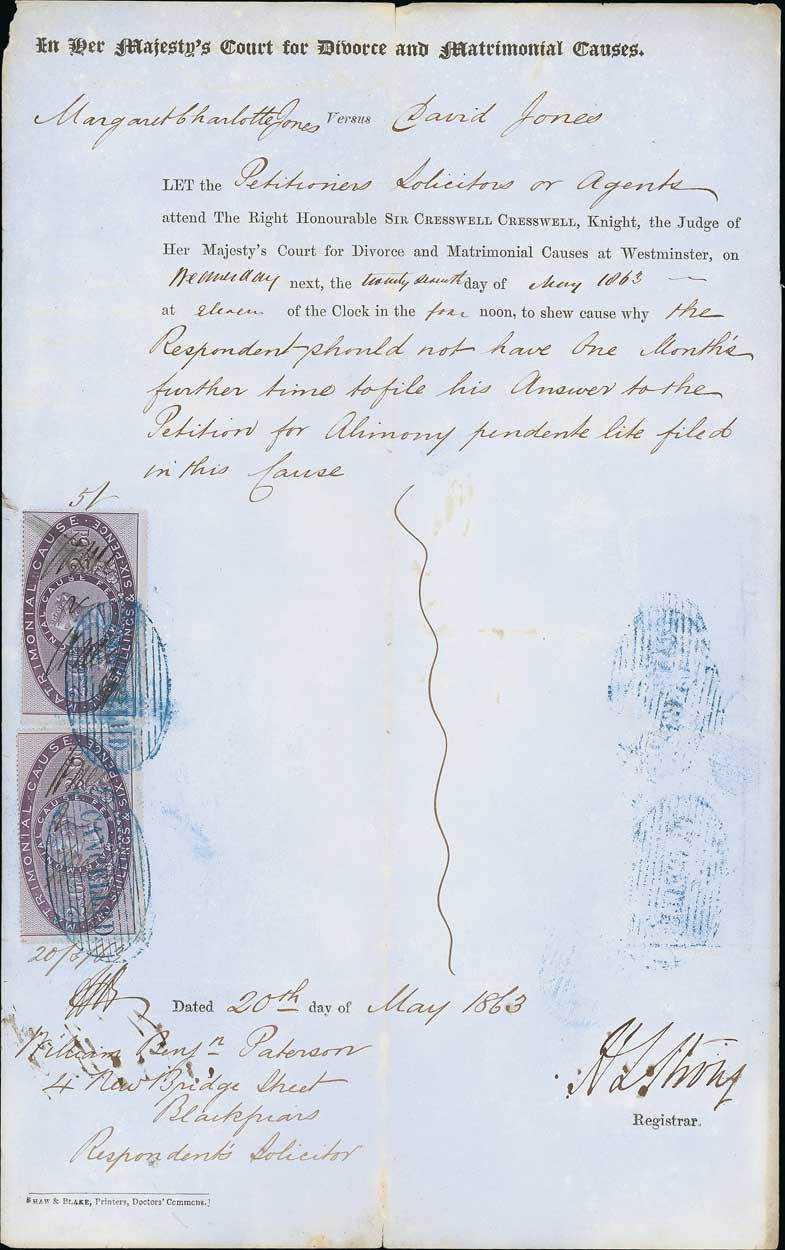 In Her Majesty's Court for Divorce and Matrimonial Causes.
Margaret Charlotte Jones Versus David Jones
LET the Petitioners Solicitors or Agents
attend The Right Honourable SIR CRESSWELL CRESSWELL, Knight, the Judge of
Her Majesty's Court for Divorce and Matrimonial Causes at Westminster, on
Wednesday next, the twenty seventh day of May 1863
at eleven of the Clock in the fore noon, to shew cause why the
Respondent should not have One Month's
further time to file his Answer to the
Petition for Alimony pendente lite filed
in this Cause
5/
MATRIMONIAL CAUSE
SHILLINGS & SIX-PENCE
MATRIMONIAL CAUSE FEE
MATRIMONIAL CAUSE
TWO SHILLINGS & SIX-PENCE
CAUSE FEE
20/5/63
Dated 20th day of May 1863
William Benjn Paterson
4 New Bridge Street
Blackfriars
Respondent's Solicitor
H L Strong
Registrar.
SHAW & BLAKE, Printers, Doctors' Commons.]